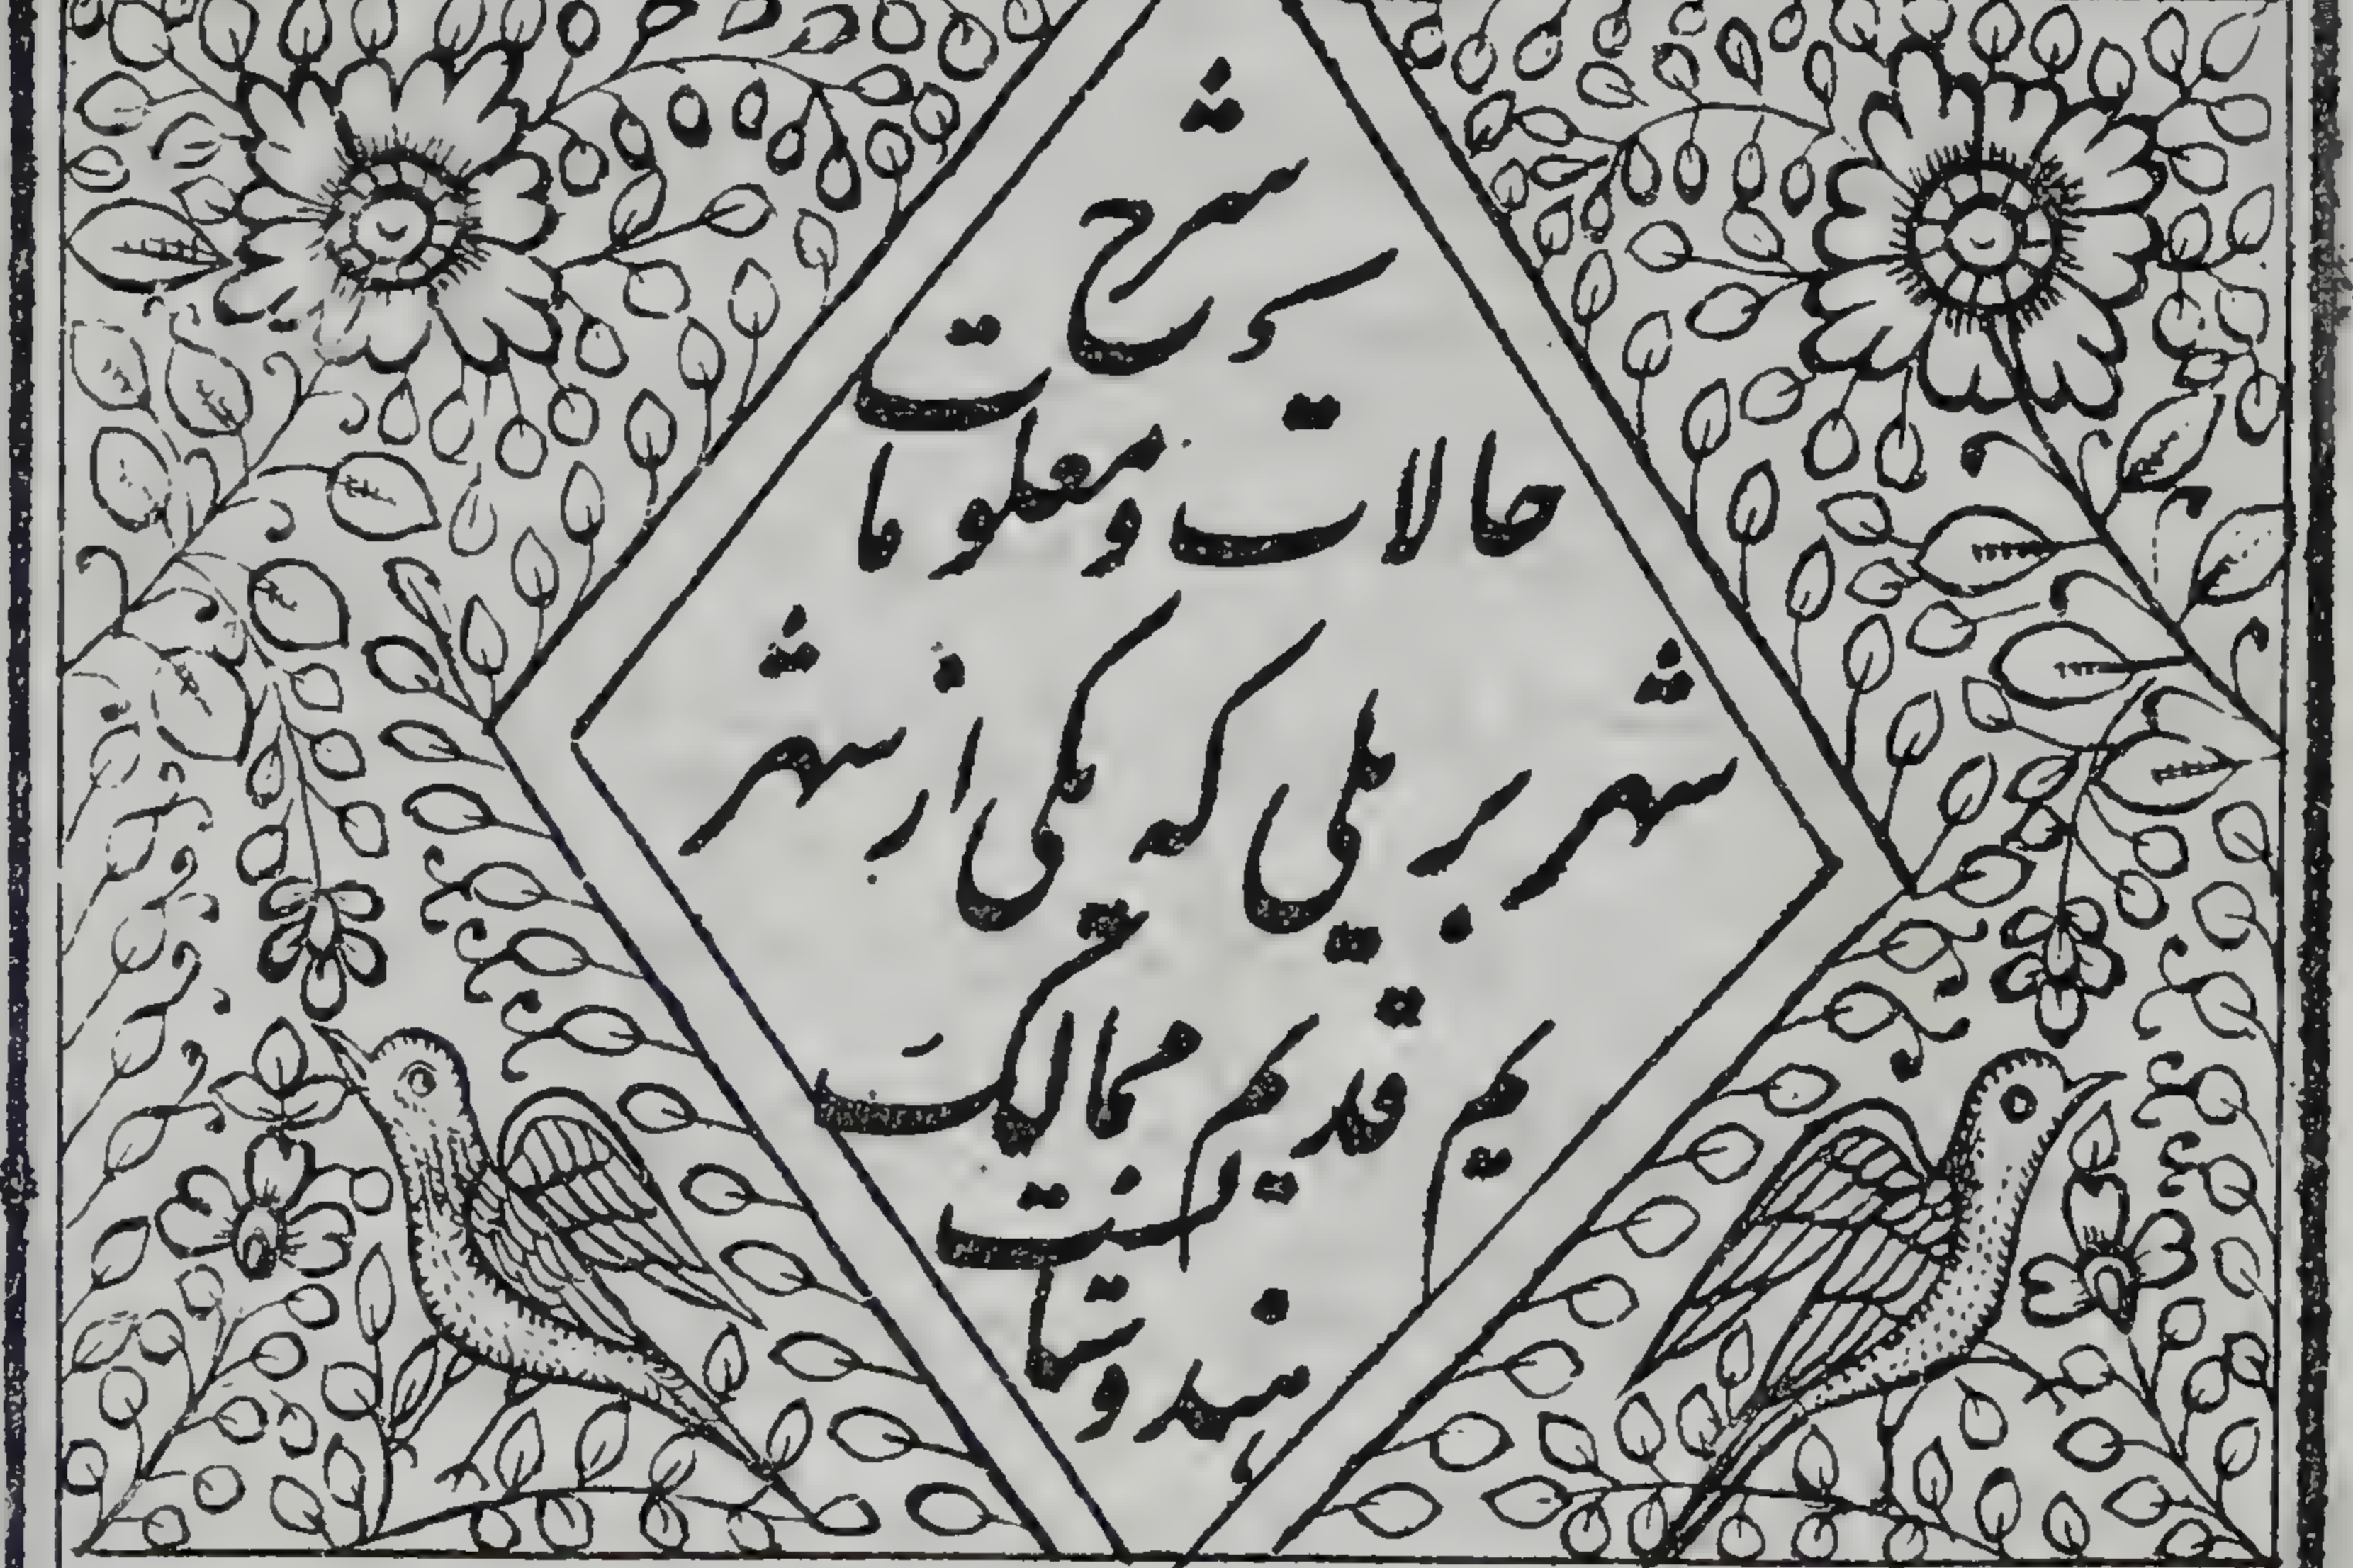 شرح
حالات و معلومات
شهر بریلی که یکی از شهر
قدیم ممالک
هندوستانست